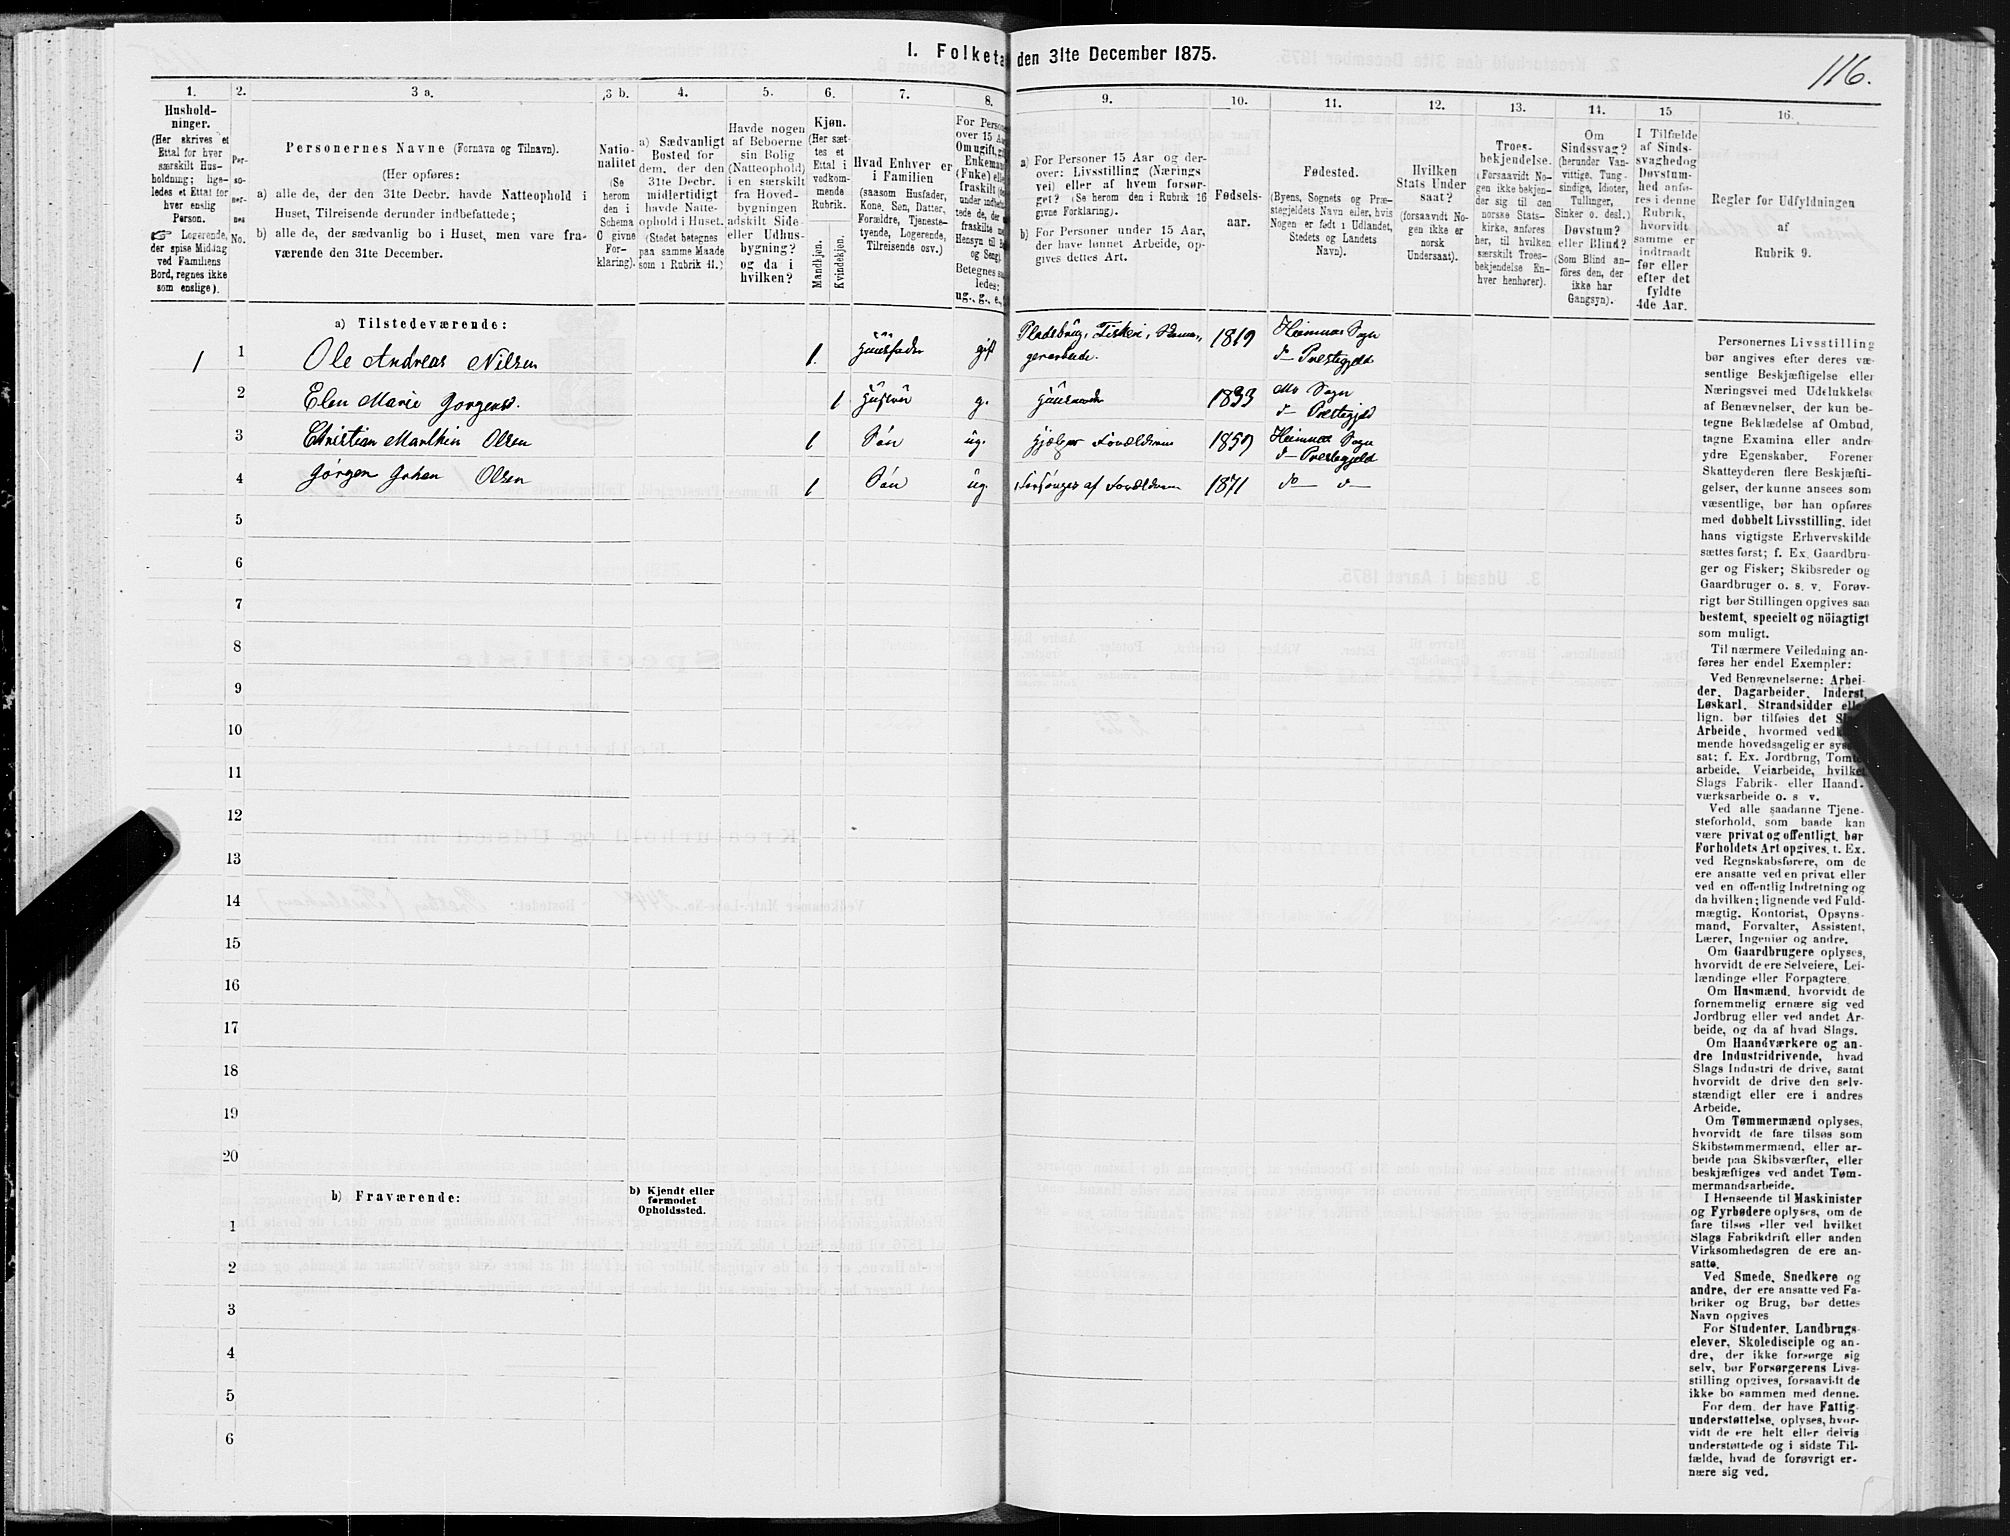 I. Folketa den 31te December 1875.
116.
1.
Hushold-
ninger.
(Her skrives et
Ettal for hver
særskilt Hus-
holdning; lige-
ledes et Ettal for
hver enslig
Person.
☞ Logerende,
der spise Middag
ved Familiens
Bord, regnes ikke
som enslige).
2.
Per-
so-
ner-
nes
No.
3 a.
Personernes Navne (Fornavn og Tilnavn).
(Her opføres:
a) alle de, der den 31te Decbr. havde Natteophold i
Huset, Tilreisende derunder indbefattede;
b) alle de, der sædvanlig bo i Huset, men vare fra-
værende den 31te December.
3 b.
Natio-
nalitet
(Se
herom
den i
Schema
O givne
For-
klaring).
4.
a) Sædvanligt
Bosted for
dem, der den
31te Decbr.
midlertidigt
havde Natte-
ophold i Huset.
(Stedet betegnes
paa samme Maade
som i Rubrik 11.)
5.
Havde nogen
af Beboerne
sin Bolig
(Natteophold)
i en særskilt
fra Hoved-
bygningen
adskilt Side-
eller Udhus-
bygning?
og da i
hvilken?
6.
Kjøn.
(Her sæt-
tes et
Ettal i
vedkom-
mende
Rubrik.
Mandkjøn.
Kvindekjøn.
7.
Hvad Enhver er
i Familien
(saasom Husfader,
Kone, Søn, Datter,
Forældre, Tjeneste-
tyende, Logerende,
Tilreisende osv.)
8.
For Persone
over 15 Aa
Om ugift, gi
Enkemand
(Enke) elle
fraskilt
Betegnes sa
ledes:
ug., g., e.,
9.
a) For Personer 15 Aar og der-
over: Livsstilling (Nærings
vei) eller af hvem forsør-
get? (Se herom den i Rubrik 16
givne Forklaring).
b) For Personer under 15 Aar,
der have lønnet Arbeide, op-
gives dettes Art.
10.
Fødsels-
aar.
11.
Fødested.
(Byens, Sognets og Præ-
stegjeldets Navn eller, hvis
Nogen er født i Udlandet,
Stedets og Landets
Navn).
12.
Hvilken
Stats Under
saat?
(forsaavidt No-
gen ikke er
norsk
Undersaat).
13.
Troes-
bekjendelse.
(Forsaavidt No-
gen ikke bekjen-
der sig til den
norske Stats-
kirke, anføres
her, til hvilken
særskilt Troes-
bekjendelse En-
hver henhører).
14.
Om
Sindssvag?
(herunder Van-
vittige, Tung-
sindige, Idioter,
Tullinger,
Sinker o. desl.)
Døvstum?
eller Blind?
(Som Blind an-
føres den, der
ikke har
Gangsyn).
15
I Tilfælde
af Sinds-
svaghed og
Døvstum-
hed anfø-
res i denne
Rubrik,
hvorvidt
samme er
indtraadt
før eller
efter det
fyldte
4de Aar.
16.
Regler for Udfyldningen
af
Rubrik 9.
a) Tilstedeværende:
1 1 Ole Andreas Nilsen 1. Huusfader gift Pladsbrug, Fiskeri, 1819 Hemnæs Sogn
gerarbeide. d— Præstegjeld
2 Elen Marie Jørgensd. 1 Hustru g. 1833 Mo Sogn
d— Præstegjeld
3 Christian Olsen 1 Søn ug. Hjælper Forældrene 1859 Hemnæs Sogn
d— Præstegjeld
4 Jørgen Johan Olsen 1 Søn ug. Forsørges af Forældrene 1871 do— d—
5
6
7
8
9
10
11
12
13
14
15
16
17
18
19
20
b) Fraværende:
b) Kjendt eller
formodet
Opholdssted.
1
2
3
4
5
6
Personernes Livsstilling
bør angives efter deres væ-
sentlige Beskjæftigelse eller
Næringsvei med Udelukkelse
af Benævnelser, der kun be-
tegne Beklædelse af Ombud,
tagne Examina eller andre
ydre Egenskaber. Forener
Skatteyderen flere Beskjæfti-
gelser, der kunne ansees som
væsentlige, bør han opføres
med dobbelt Livsstilling, idet
hans vigtigste Erhvervskilde
sættes først; f. Ex. Gaardbru-
ger og Fisker; Skibsreder og
Gaardbruger o. s. v. Forøv-
rigt bør Stillingen opgives saa
bestemt, specielt og nöiagtigt
som muligt.
Til nærmere Veiledning an-
føres her endel Exempler:
Ved Benævnelserne: Arbei-
der, Dagarbeider, Inderst,
Løskarl, Strandsidder elle
lign. bør tilføies det Sl
Arbeide, hvormed vedk
mende hovedsagelig er sys
sat; f. Ex. Jordbrug, Tomte
arbeide, Veiarbeide, hvilket
Slags Fabrik- eller Haand-
værksarbeide o. s v.
Ved alle saadanne Tjene-
steforhold, som baade kan
være privat og offentligt, bør
Forholdets Art opgives, t. Ex.
ved Regnskabsførere, om de
ere ansatte ved en privat eller
ved en offentlig Indretning og
da hvilken; lignende ved Fuld-
mægtig, Kontorist, Opsyns-
mand, Forvalter, Assistent,
Lærer, Ingeniør og andre.
Om Gaardbrugere oplyses,
hvorvidt de ere Selveiere, Lei-
lændinge eller Forpagtere.
Om Husmænd, hvorvidt de
fornemmelig ernære sig ved
Jordbrug eller ved andet Ar-
beide, og da af hvad Slags.
Om Haandværkere og an-
dre Industridrivende, hvad
Slags Industri de drive, samt
hvorvidt de drive den selv-
stændigt eller ere i andres
Arbeide.
Om Tømmermænd oplyses,
hvorvidt de fare tilsøs som
Skibstømmermænd, eller ar-
beide paa Skibsværfter, eller
beskjæftiges ved andet Tøm-
mermandsarbeide.
I Henseende til Maskinister
og Fyrbødere oplyses, om de
fare tilsøs eller ved hvilket
Slags Fabrikdrift eller anden
Virksomhedsgren de ere an-
satte.
Ved Smede, Snedkere og
andre, der ere ansatte ved Fa-
briker og Brug, bør dettes
Navn opgives
For Studenter, Landbrugs-
elever, Skoledisciple og an-
dre, der ikke forsørge sig
selv, bør Forsørgerens Livs-
stilling opgives, forsaavidt de
ikke bo sammen med denne.
For dem, der have Fattig-
understøttelse, oplyses, hvor-
vidt de ere helt eller delvis
understøttede og i sidste Til-
fælde, hvad de forøvrigt er-
nære sig ved.